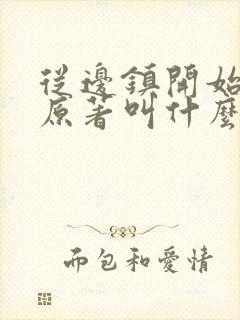 從邊鎮開始
原著叫什麼
而包和愛情